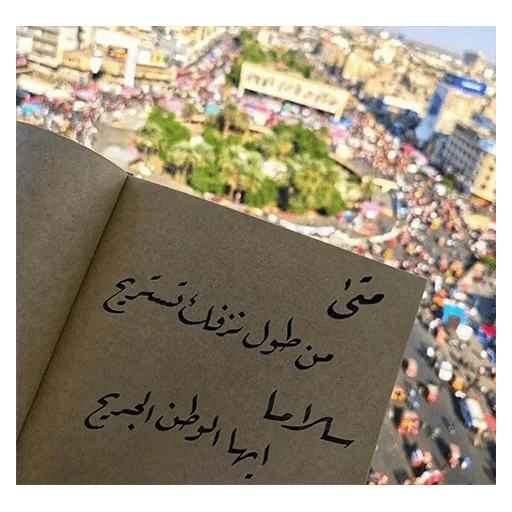 متىٰ
من طول نزفك تستريح
سلاما
ايها الوطن الجريح